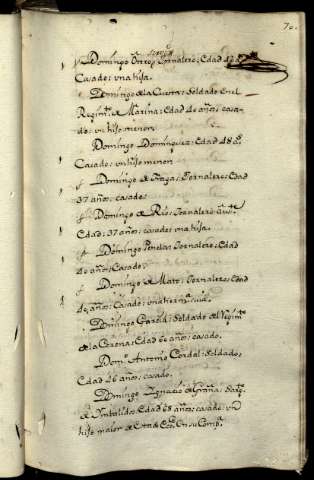 70.
Domingo Orro; Jornalero; Edad 42 a.s
Casado; vna hija.
Domingo de la Cuesta; Soldado en el
Regim.to de Marina; Edad 40 años; casa-
do: vn hijo menor.
Domingo Dominguez: Edad 48 a.s
Casado; vn hijo menor
Domingo de Fraga; Jornalero; Edad
37 años; casado;
Domingo de Rio; Jornalero
Edad; 37 años; casado; vna hija.
Domingo Penelas Jornalero; Edad
40 años; Casado;
Domingo de Mato; Jornalero; Edad
40 años; Casado; vna herm.a suia.
Domingo Garzia; Soldado de Regim.to
de la Corona; Edad 60 años; casado.
Dom.o Antonio Cordal; Soldado;
Edad 46 años; casado.
Domingo Ignacio de Graña; Sarg.to
de Imbalidos; Edad 68 años; casado vn
hijo maior de Edad Con.do en su Comp.a